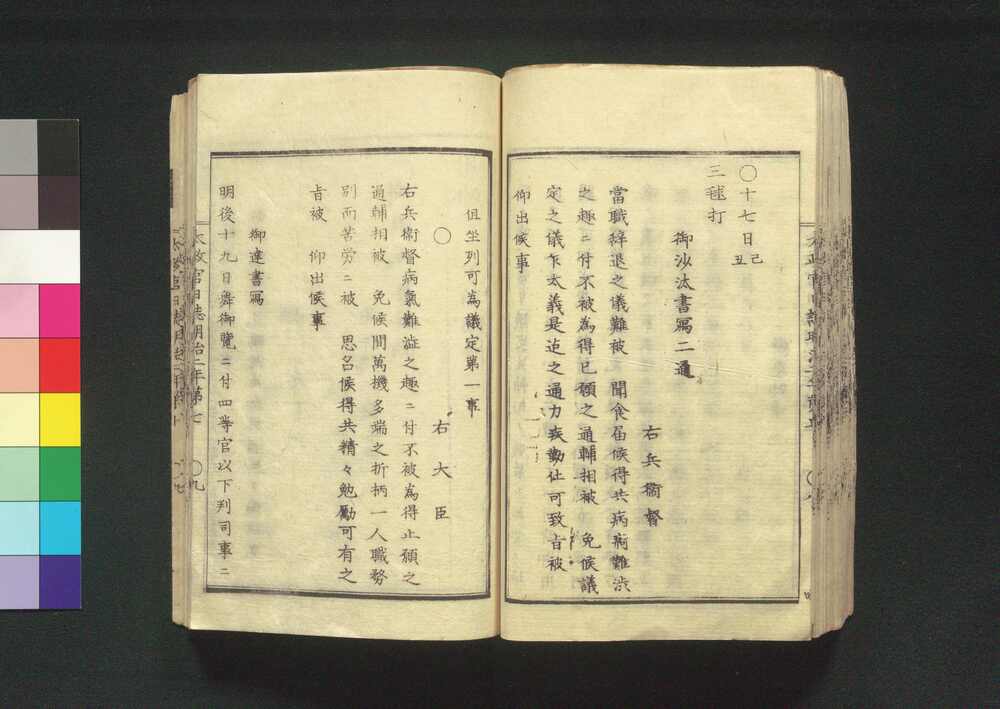 〇十七日己丑
三毬打
御沙汰書寫二通
右兵衞督
當職辭退之儀難被 聞食屆候得共病痾難渋
之趣ニ付不被為得已願之通輔相被 免候議
定之儀乍太義是迄之通力疾勤仕可致旨被
仰出候事
但坐列可為議定第一事
〇 右大臣
右兵衞督病氣難澁之趣ニ付不被為得止願之
通輔相被 免候間萬機多端之折柄一人職務
別而苦労ニ被 思召候得共精々勉勵可有之
旨被 仰出候事
御達書寫
明後十九日舞御覽ニ付四等官以下判司事ニ
太政官日誌明治二年第七 〇九